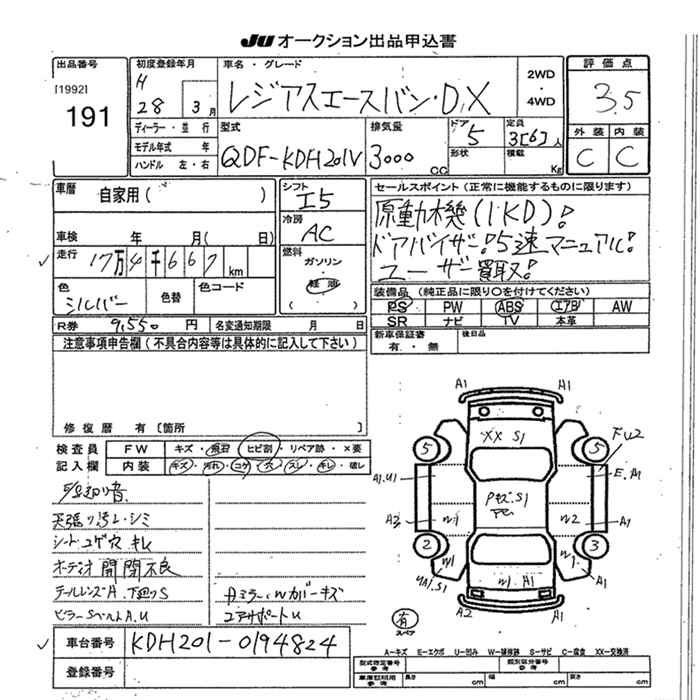 JU オークション出品申込書
出品番号 初度登録年月 車名・グレード 2WD ・ 4WD 評価点
[1992] H
191 28 3月 レジアスエースバン・DX 3.5
ディーラー・並行 型式 排気量 ドア 定員 外装 内装
モデル年式 年 QDF-KDH201V 3000cc 5 3[6]人 C C
ハンドル 左・右 形状 積載 Kg
車暦 自家用( ) シフト I5 セールスポイント(正常に機能するものに限ります)
冷房 AC 原動機(1KD)!
車検 年 月( 日) ドアバイザー!5速マニュアル!
走行 17万4千667km 燃料 ガソリン・軽油 ( ) ユーザー買取!
色 シルバー 色替 色コード 装備品(純正品に限り〇を付けてください)
PS PW ABS エアB AW
SR ナビ TV 本革
R券 9,550円 名変通知期限 月 日 新車保証書 有・無 後日品
注意事項申告欄(不具合内容等は具体的に記入して下さい)
修復歴 有〔箇所 〕
検査員 FW キズ・飛石・ヒビ割・リペア跡・×要
記入欄 内装 キズ・汚れ・コゲ・穴・スレ・キレ・破レ
天張り汚レ・シミ
シートコゲ穴 キレ
オーディオ開閉不良
テールレンズA.下廻りS
ピラーSベルトA.U
カミラーWカバーキズ
コアサポートU
車台番号 KDH201-0194824
登録番号
A1 A1
XX S1
5 5 FU2
A1.U1 E.A1
A2 W1 W2 A1
2 3
W1 W1
W1.A1
A2 A1
有 スペア
A-キズ E-エクボ U-凹み W-補修跡 S-サビ C-腐食 XX-交換済
型式指定番号 参考 類別区分番号 参考
車庫証明用 参考 長さ cm 幅 cm 高さ cm